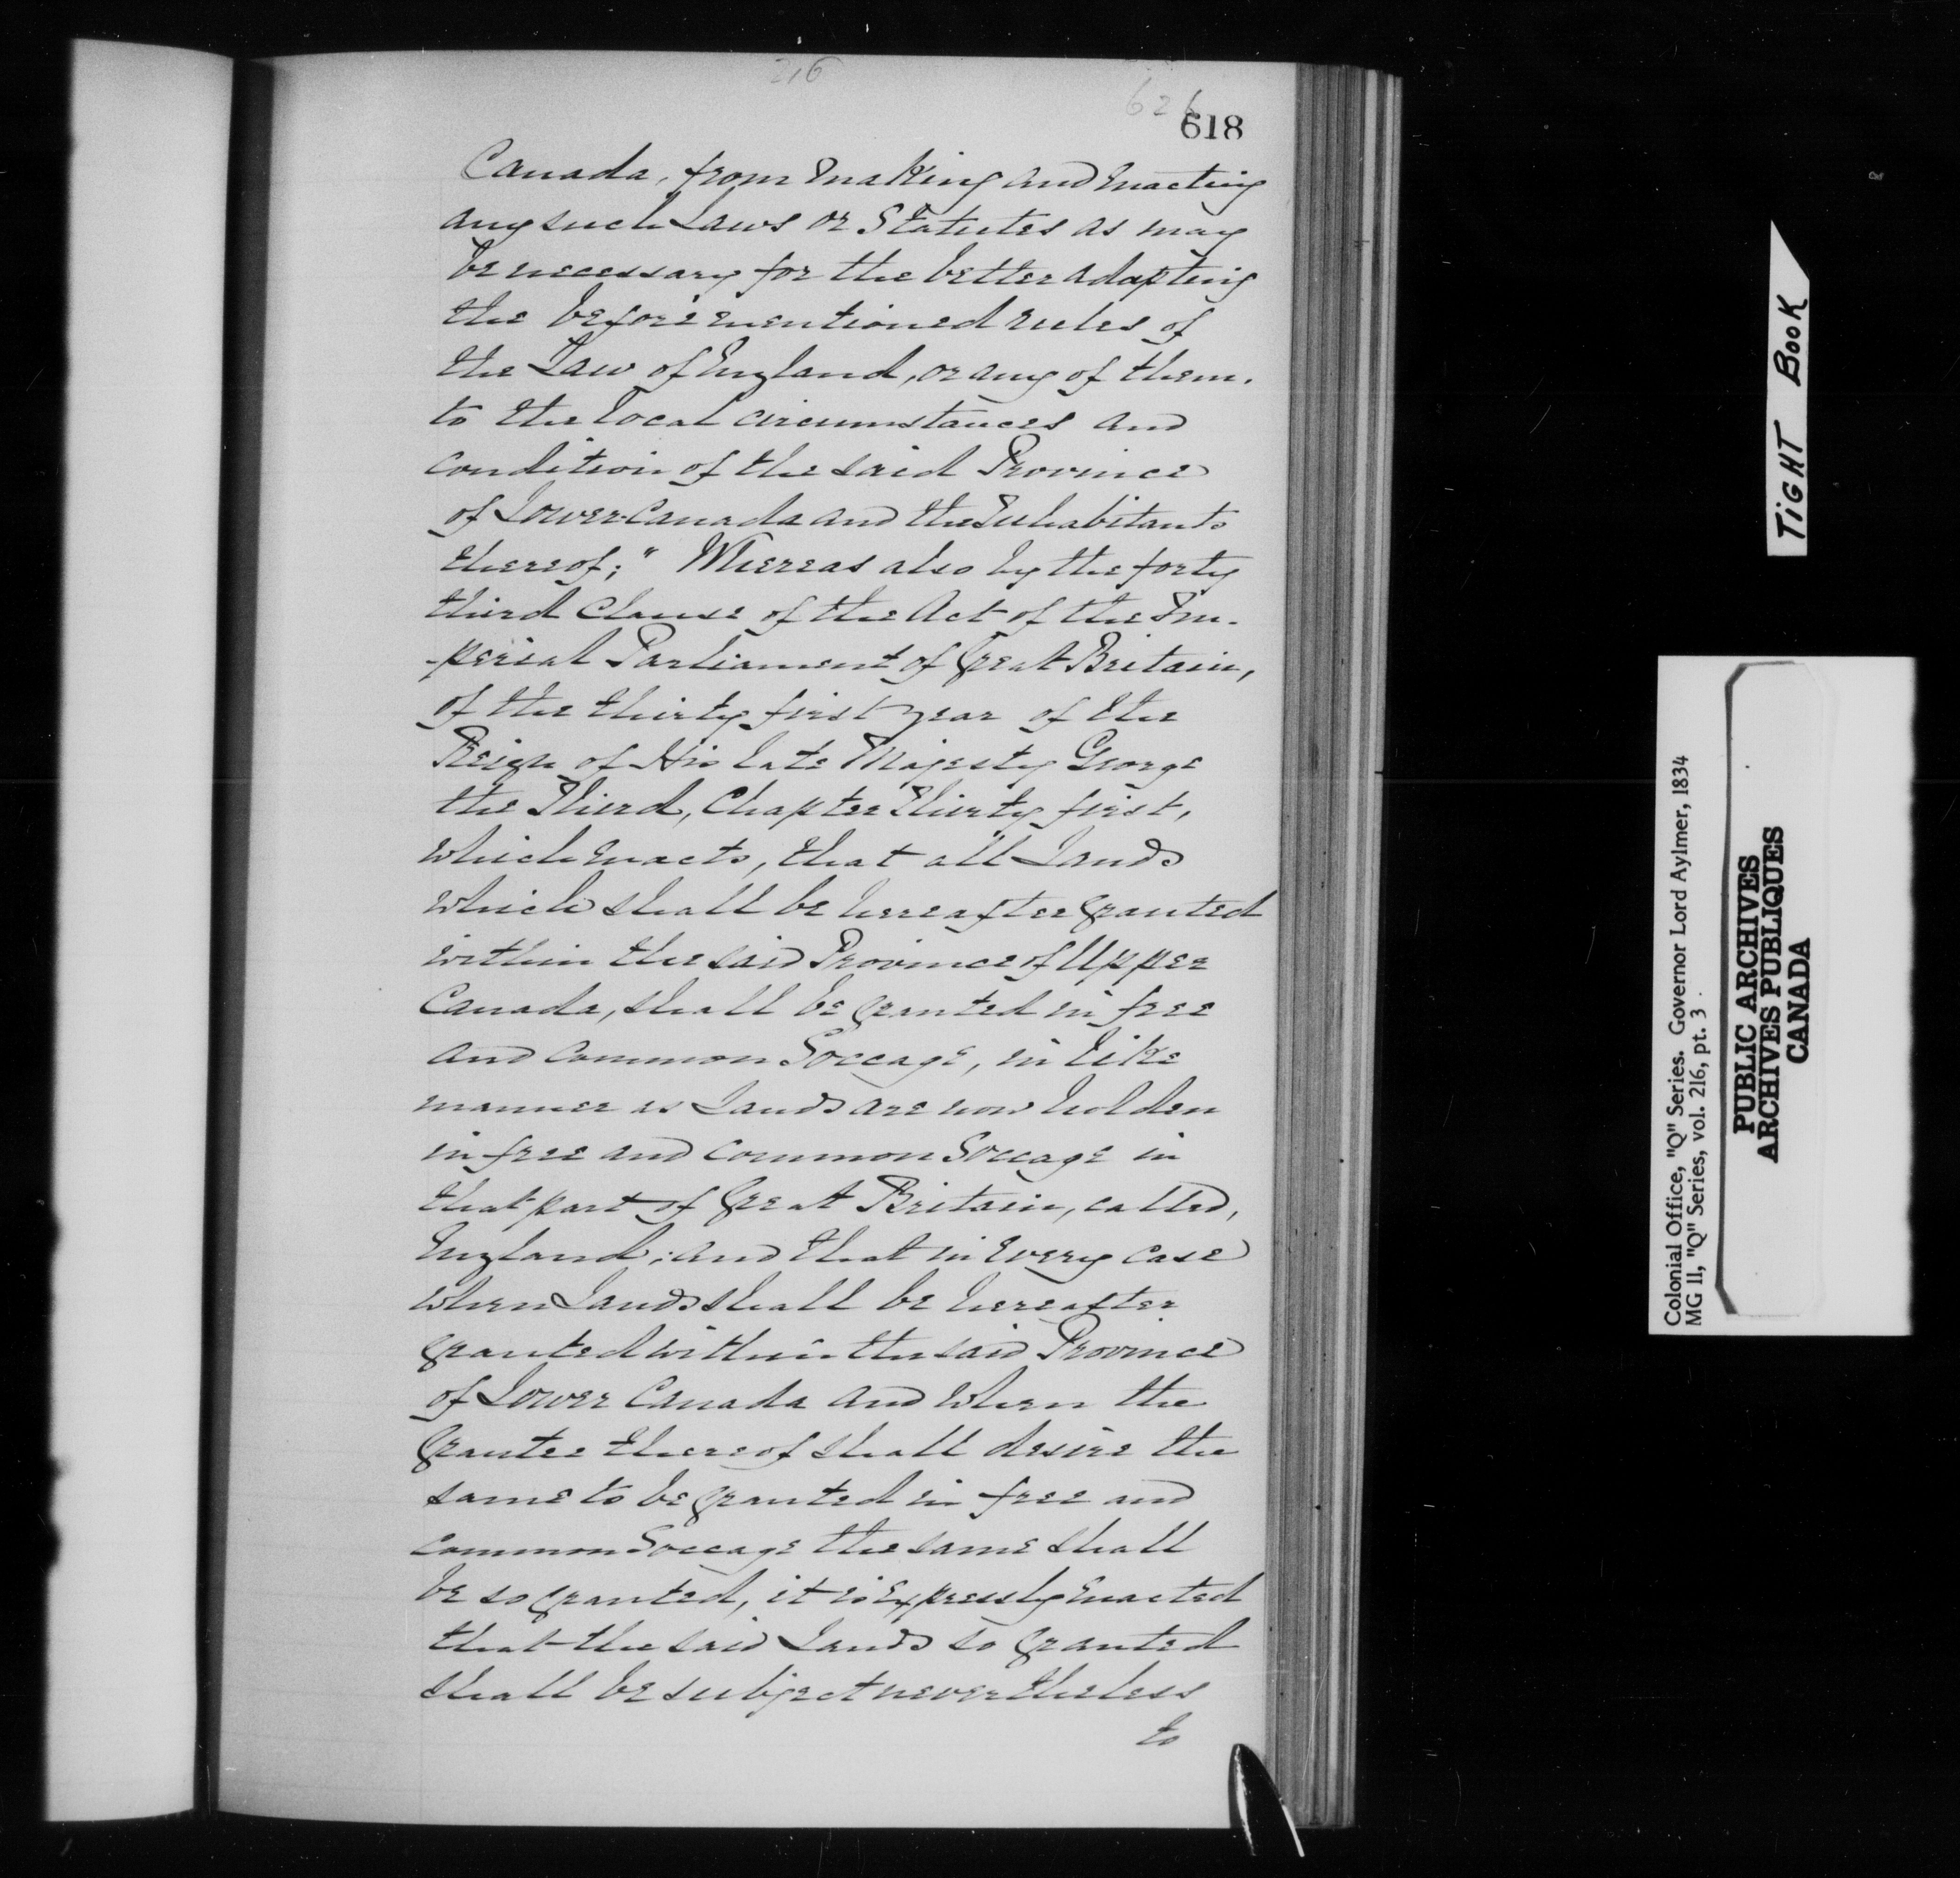 216
626
618
Canada, from making and Enacting
any such Laws or Statutes as may
be necessary for the better adapting
the beforementioned rules of
the Law of England, or any of them.
to the local circumstances and
condition of the said Province
of Lower Canada and the Inhabitants
thereof;" Whereas also by the forty
third Clause of the Act of the Im-
-perial Parliament of Great Britain,
of the thirty first year of the
Reign of His late Majesty George
the Third, Chapter Thirty first,
which Enacts, that all Lands
which shall be hereafter granted
within the said Province of Upper
Canada, shall be granted in free
and common Soccage, in like
manner as Lands are now holden
in free and common Soccage in
that part of Great Britain, called,
England; and that in Every case
when Lands shall be hereafter
granted within the said Province
of Lower Canada and when the
Grantee thereof shall desire the
same to be granted in free and
common Soccage the same shall
be so granted, it is Expressly Enacted
that the said Lands so granted
shall be subject nevertheless
to
TIGHT BOOK
Colonial Office, "Q" Series. Governor Lord Aylmer, 1834
MG 11, "Q" Series, vol. 216, pt. 3.
PUBLIC ARCHIVES
ARCHIVES PUBLIQUES
CANADA